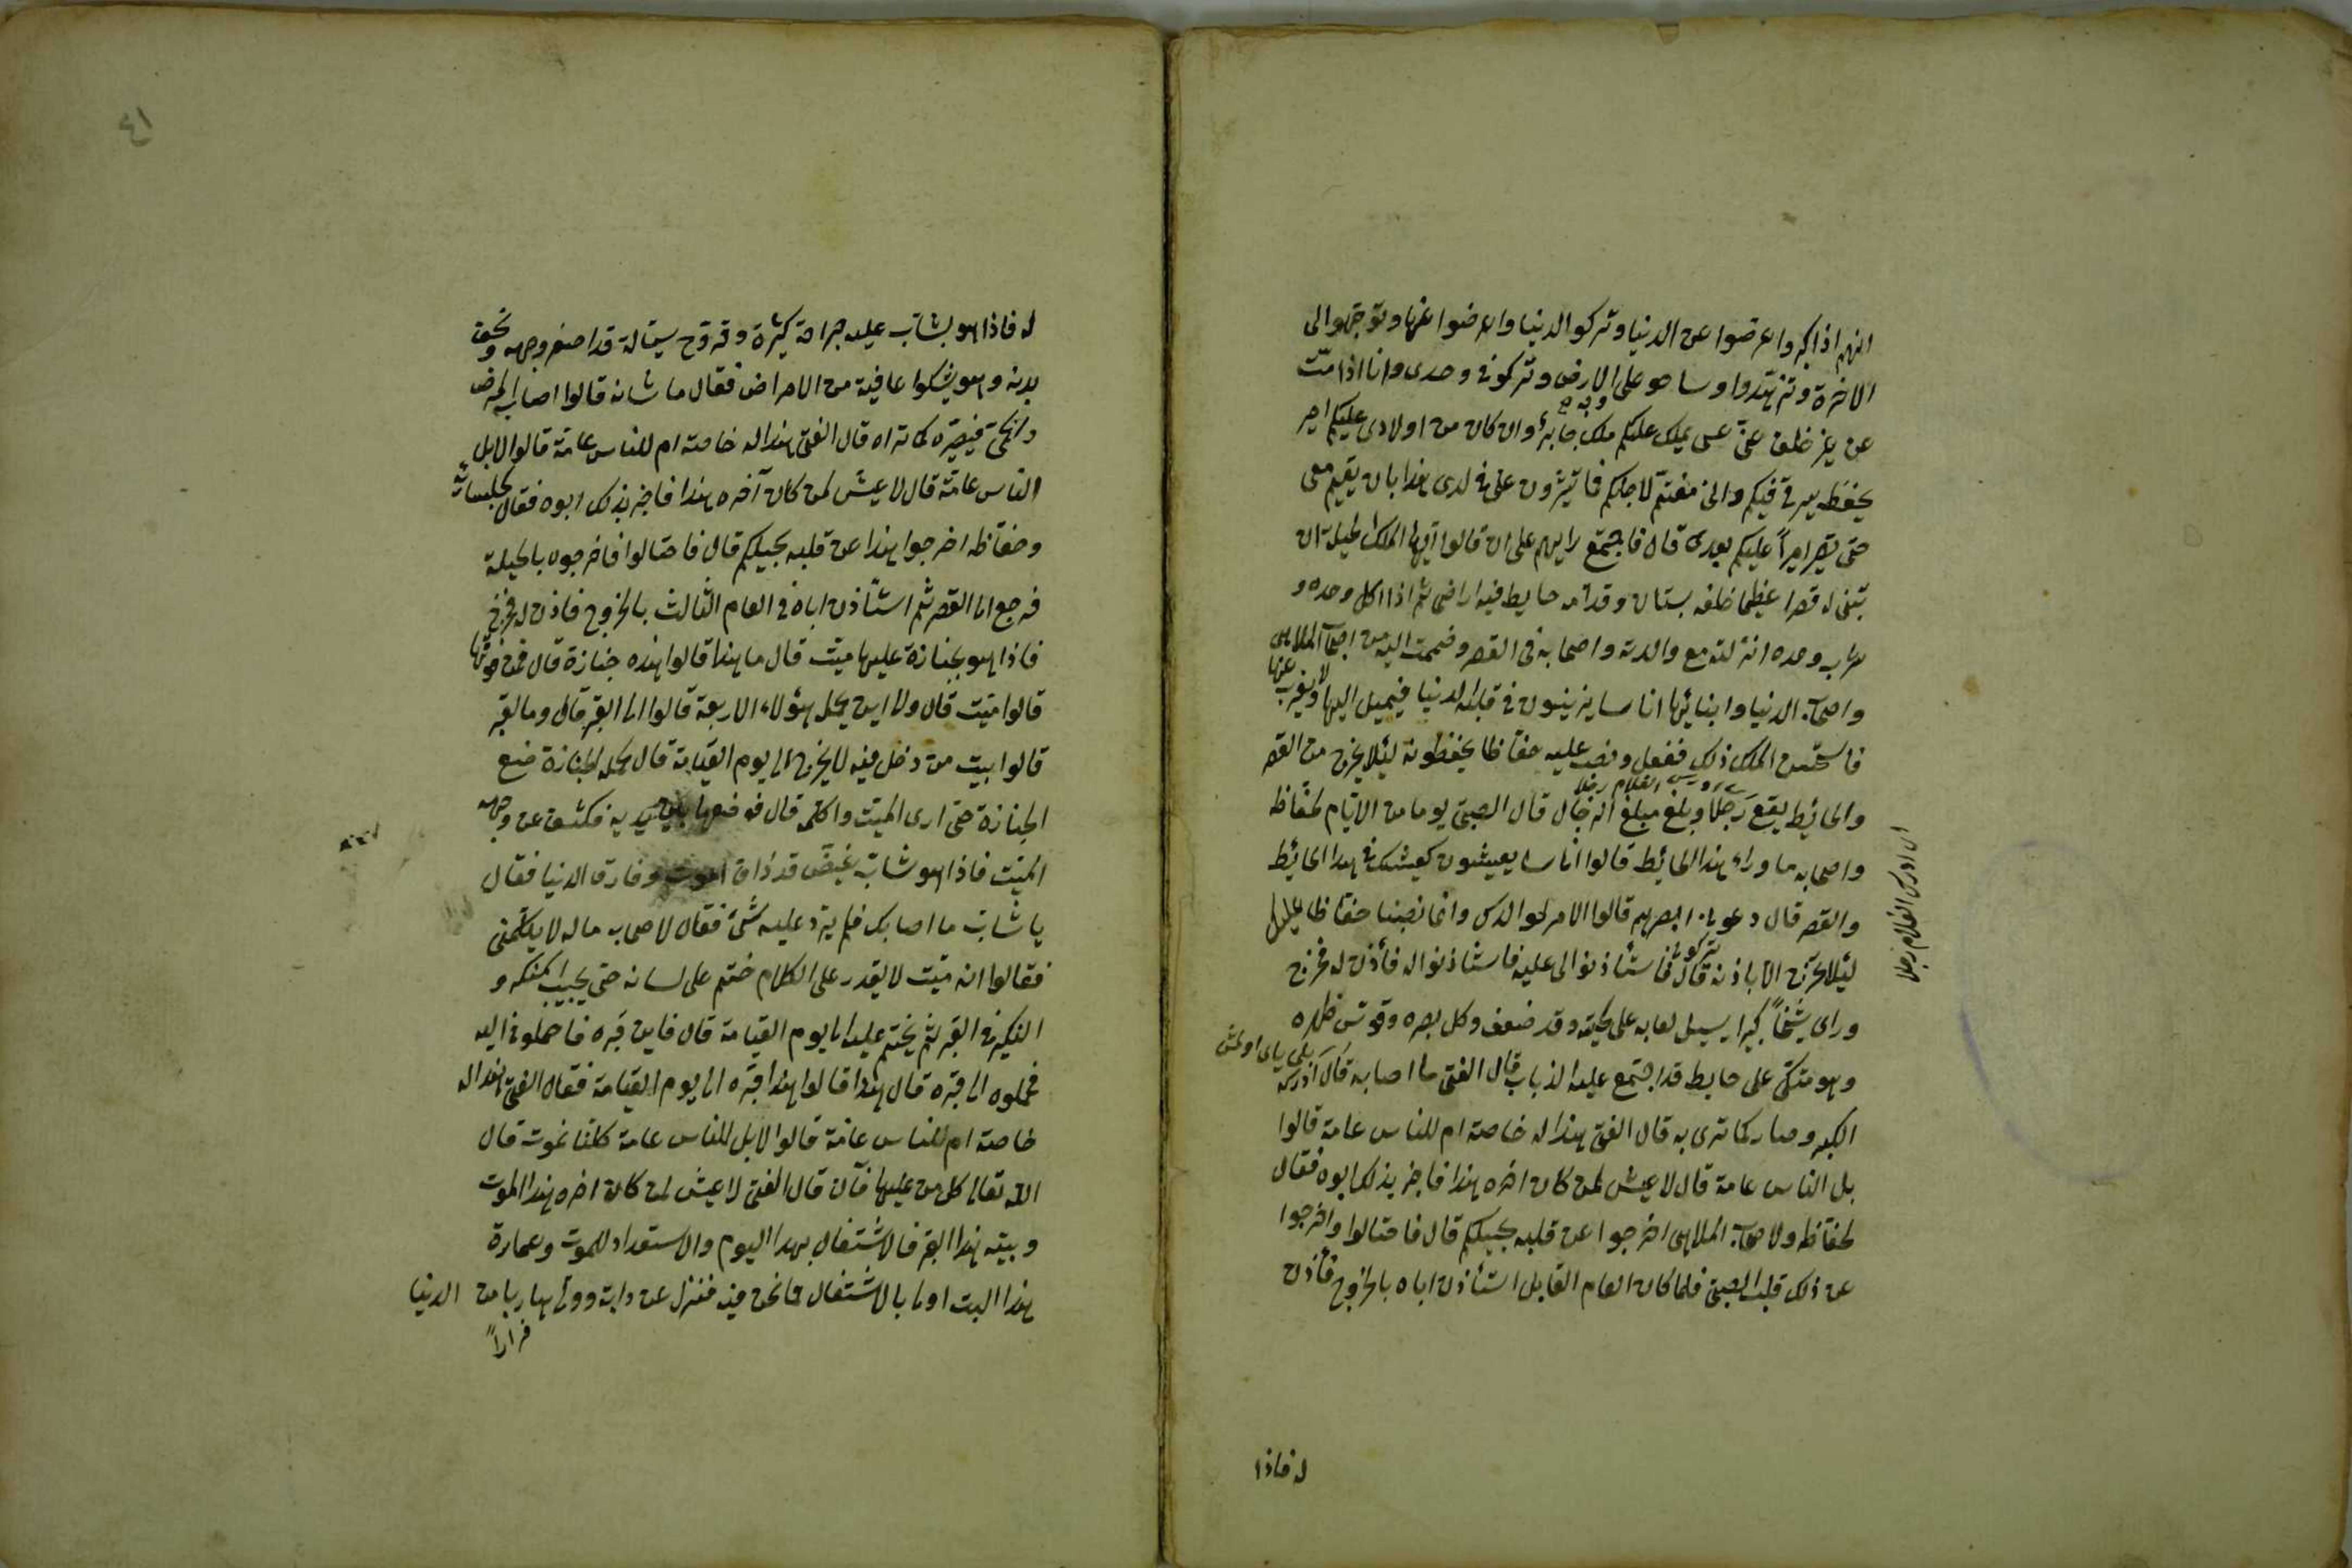 انهم اذا كبروا عرضوا عن الدنيا وتركوا الدنيا واعرضوا عنها وتوجهوا الى
الاخرة وتزهدوا وساحو على الارض وتركونى وحدى وانا اذا متّ
عن غير خلف عنّى عسى يملك عليكم ملك جابر وان كان من اولادى عليكم امير
يحفظ سيرتى فيكم وانى مغتم لاجلكم فا تيثرون علىّ فى لدى هذا بان يقيم معى
حتى يصير اميراً عليكم بعدى قال فاجتمع رايهم على ان قالوا ايّها الملك الحيلة ان
تبنى له قصرا عظيما خلفه بستان وقدامه حايط فيه اراضى ثم اذا اكل وحده و
شرب وحده انزلته مع والدته واصحابه فى القصر وضممت اليه من اصحاب الملاهى
واصحاب الدنيا وابنائها اناسا يزينون فى قلبه الدنيا فيميل اليها ولا يغرب عنها
فاستحسن الملك ذلك ففعل ونصب عليه حفّاظا يحفظونه لئلا يخرج من القصر
والحائط يقع رجلا وبلغ مبلغ الرجال قال الصبى يوما من الايّام لحفّاظه
واصحابه ما وراء هذا الحائط قالوا اناسا يعيشون كعيشك فى هذا الحائط
والقصر قال دعونى ابصرهم قالوا الامر لوالدك وانما نصبنا حفّاظا عليك
لئلا تخرج الا باذنه قال فاستأذنوا لى عليه فاستأذنوا له فأذن له فخرج
وراى شيخاً كبيرا يسيل لعابه على لحيته وقد ضعف وكل بصره وقوّس ظهره
وهو متكّى على حايط قد اجتمع عليه الذباب قال الفتى ما اصابه قال ادركه
الكبر وصار كما ترى به قال الفتى هذا له خاصة ام للناس عامة قالوا
بل الناس عامة قال لا عيش لمن كان اخره هذا فاخبر بذلك ابوه فقال
لحفّاظه ولاصحاب الملاهى اخرجوا عن قلبه بحيلكم قال فاحتالوا واخرجوا
عن ذلك قلب الصبى فلما كان العام القابل استأذن اباه بالخروج فأذن
اى ادرك الغلام رجلا
له فاذا
٤١
له فاذا هو بشاب عليه جراحة كثيرة وقروح سيّالة قد اصفر وجهه ونحف
بدنه وهو يشكوا عافية من الامراض فقال ما شانه قالوا اصابه المرض
والحمّى فيصيره كما تراه قال الفتى هذا له خاصة ام للناس عامّة قالوا لا بل
الناس عامّة قال لا عيش لمن كان آخره هذا فاخبر بذلك ابوه فقال لجلسائه
وحفّاظه اخرجوا هذا عن قلبه بحيلكم قال فاحتالوا فاخرجوه بالحيلة
فرجع الى القصر ثم استأذن اباه فى العام الثالث بالخروج فاذن له فخرج
فاذا هو بجنازة عليها ميّت قال ما هذا قالوا هذه جنازة قال فمن فوقها
قالوا ميّت قال والى اين يحمل هؤلاء الاربعة قالوا الى القبر قال وما القبر
قالوا بيت من دخل فيه لا يخرج الى يوم القيامة قال لحملة الجنازة ضع
الجنازة حتى ارى الميّت واكلّمه قال فوضعها بين يديه فكشف عن وجهه
الميّت فاذا هو شاب غيض قد ذاق الموت وفارق الدنيا فقال
يا شاب ما اصابك فلم يردّ عليه شئ فقال لاصحابه ما له لا يكلّمنى
فقالوا انه ميّت لا يقدر على الكلام ختم على لسانه حتى يجيب المنكر و
النكير فى القبر ثم يختم عليه الى يوم القيامة قال فاين قبره فاحملونى اليه
فحملوه الى قبره قال هذا قالوا هذا قبره الى يوم القيامة فقال الفتى هذا له
خاصة ام للناس عامّة قالوا لا بل للناس عامة كلنا نموت قال
الله تعالى كل من عليها فان قال الفتى لا عيش لمن كان اخره هذا الموت
وبيته هذا القبر فالاشتغال بهذا اليوم والاستعداد للموت وعمارة
هذا البيت اولى بالاشتغال مما نحن فيه فنزل عن دابته وولّى هاربا من الدنيا
فراراً